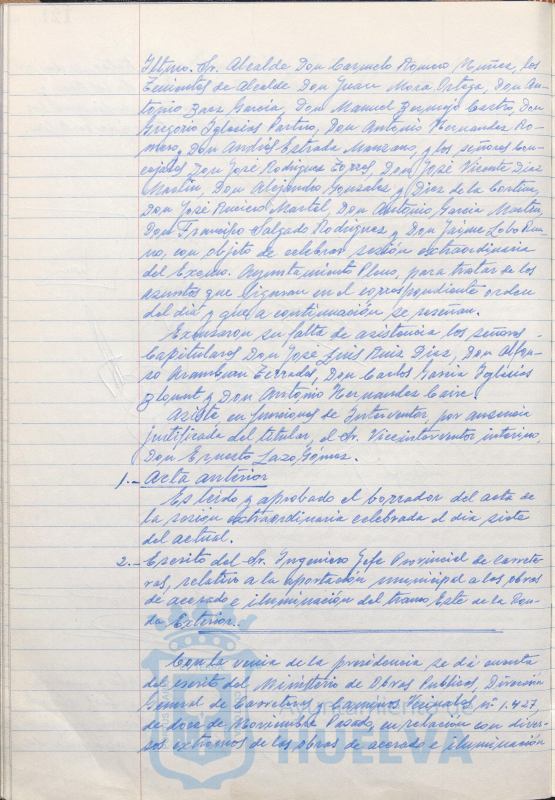 Iltmo. Sr. Alcalde Don Carmelo Romero Núñez, los
Tenientes de Alcalde Don Juan Mora Ortega, Don An-
tonio Baez Garcia, Don Manuel Bermejo Castro, Don
Gregorio Iglesias Partro, Don Antonio Hernandez Ro-
mero, y Don Andrés Estrada Manzano, y los señores Con-
cejales Don José Rodriguez Torres, Don José Vicente Diaz
Martin, Don Alejandro Gonzalez y Diez de la Cortina,
Don José Riviero Martel, Don Antonio Garcia Martin,
Don Francisco Salgado Rodriguez y Don Jaime Lobo Rua-
no, con objeto de celebrar sesión extraordinaria
del Excmo. Ayuntamiento Pleno, para tratar de los
asuntos que figuran en el correspondiente orden
del dia y que a continuación se reseñan.
Excusaron su falta de asistencia los señores
Capitulares Don José Luis Ruiz Diaz, Don Alfon-
so Aramburu Terrades, Don Carlos Garcia Iglesias
y Don Antonio Hernandez Caire
Asiste en funciones de Interventor, por ausencia
justificada del titular, el Sr. Viceinterventor interino,
Don Ernesto Lazo Gómez.
1.- Acta anterior
Es leido y aprobado el borrador del acta de
la sesión extraordinaria celebrada el dia siete
del actual.
2.- Escrito del Sr. Ingeniero Jefe Provincial de Carrete-
ras, relativo a la aportación municipal a las obras
de acerado e iluminación del tramo Este de la Ron-
da Exterior.
Con la venia de la presidencia se dá cuenta
del escrito del Ministerio de Obras Publicas, Dirección
General de Carreteras y Caminos Vecinales nº 1.427,
de doce de Noviembre Pasado, en relación con diver-
sos extremos de las obras de acerado e iluminación
HUELVA